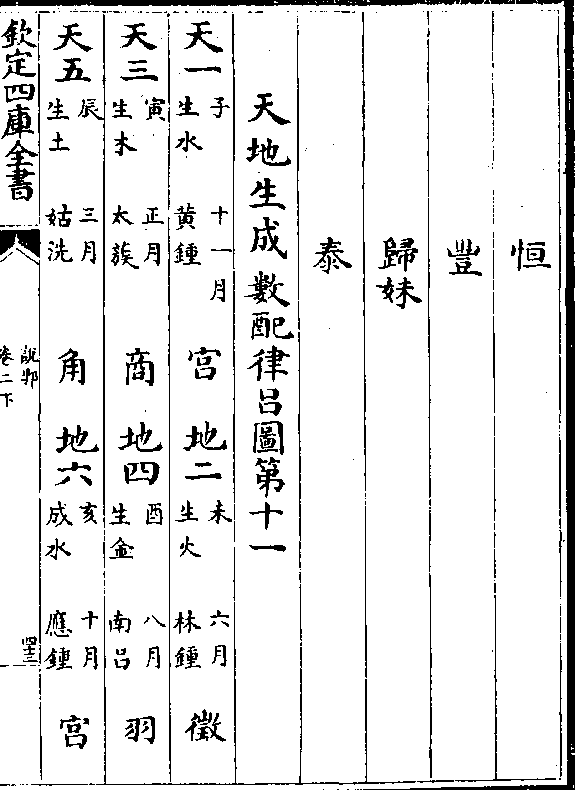 恒
豐
歸妹
泰
天地生成數配律呂圖第十一
天一 子生水 十一月黃鍾 宮 地二 未生火 六月林鍾 徵
天三 寅生木 正月太蔟 商 地四 酉生金 八月南呂 羽
天五 辰生土 三月姑洗 角 地六 亥成水 十月應鍾 宮
欽定四庫全書
說郛
卷二下
四十三